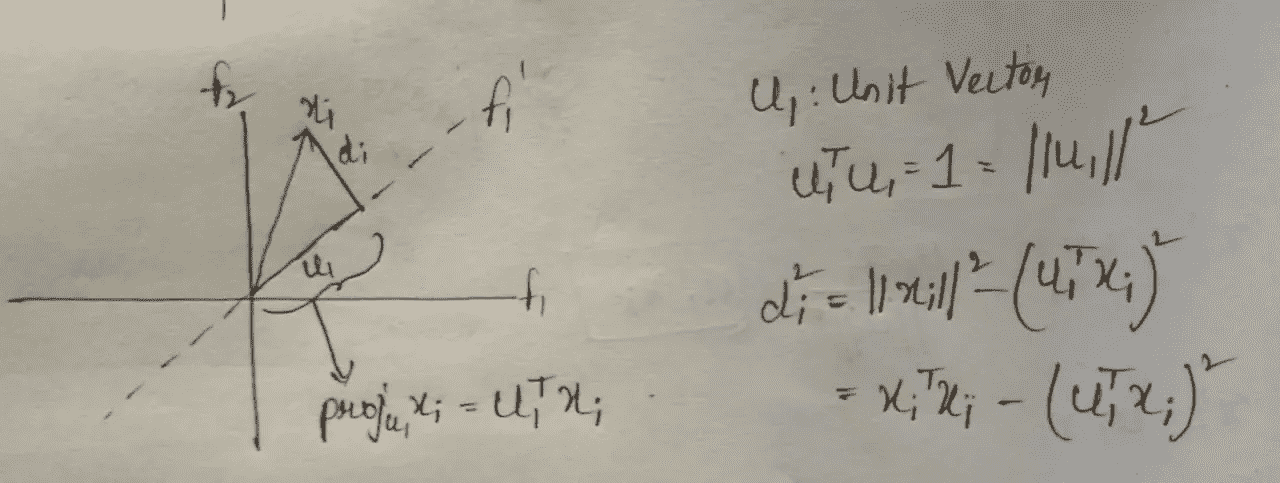 f₂
xᵢ
dᵢ
f₁'
u₁
f₁
proj_u₁ xᵢ = u₁ᵀxᵢ
u₁ : Unit Vector
u₁ᵀu₁ = 1 = ||u₁||²
dᵢ² = ||xᵢ||² - (u₁ᵀxᵢ)²
= xᵢᵀxᵢ - (u₁ᵀxᵢ)²